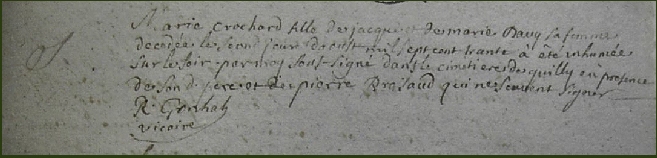 Marie Crochard fille de jacque et de marie Davy sa femme
decedée le second jour d'aoust mil sept cent trante à été inhumée
sur le soir par moy sous signé dans le cimetiere de quilly en presence
de son d. pere et de pierre Brosaud qui ne scavent signer
R. Grahal
vicaire